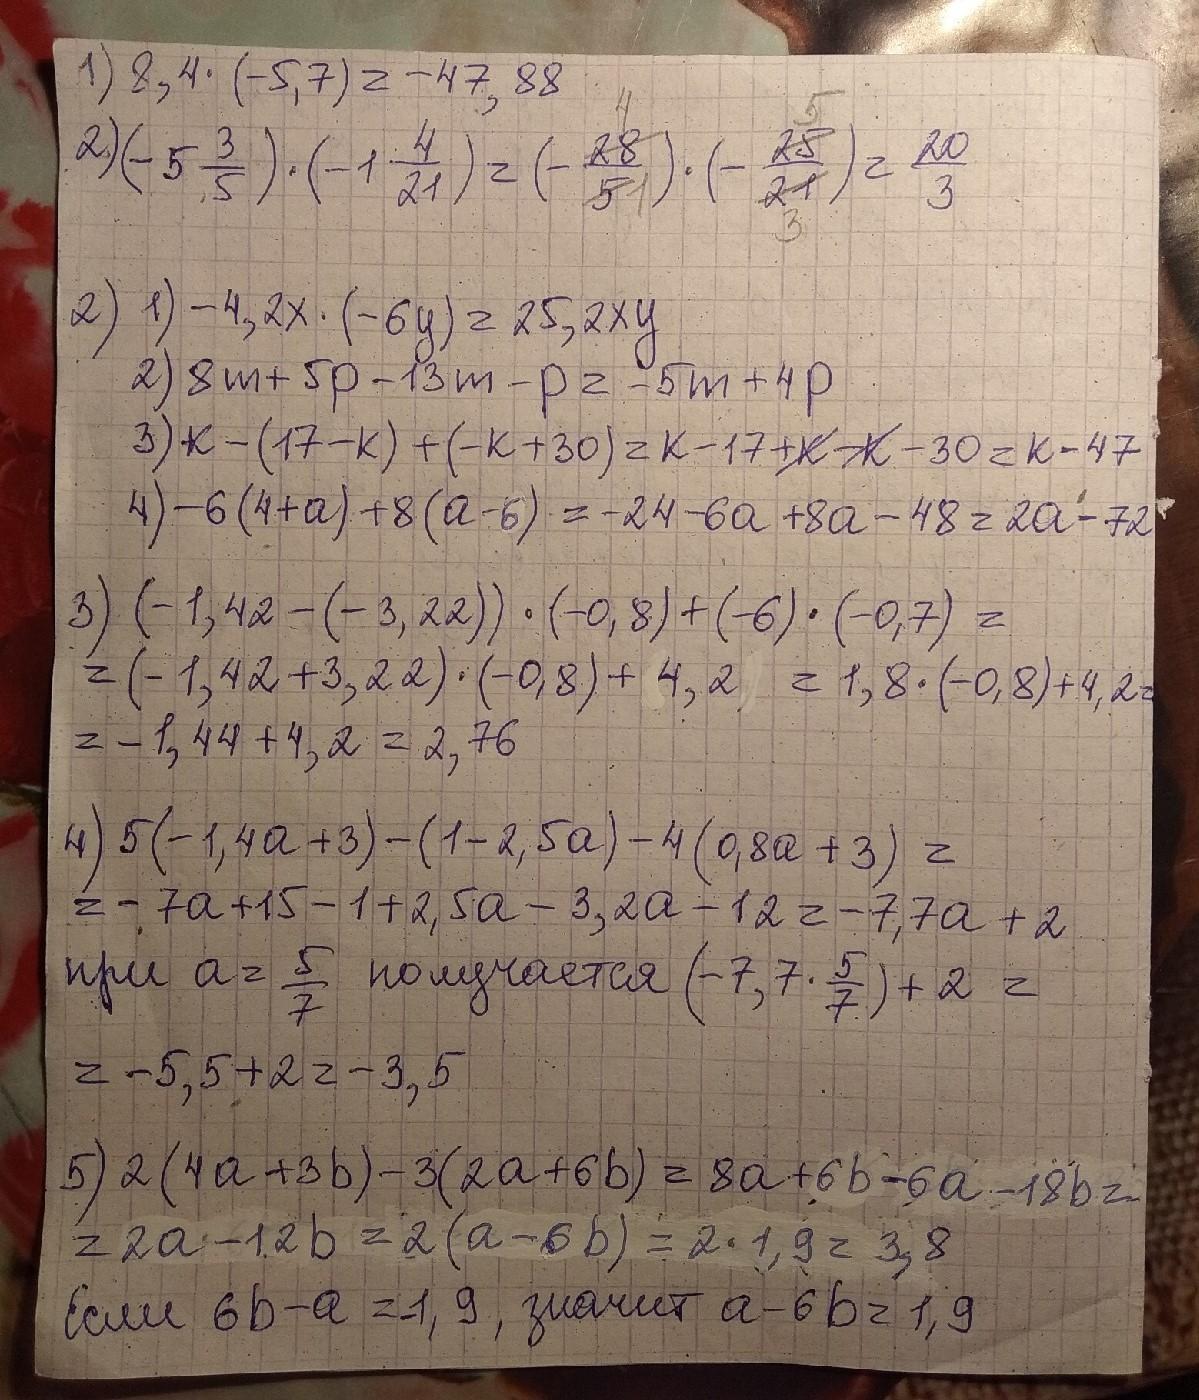 1) 8,4·(-5,7)=-47,88
2)(-5 3/5)·(-1 4/21)=(-28/5)·(-25/21)=20/3
2) 1) -4,2x·(-6y)=25,2xy
2) 8m+5p-13m-p=-5m+4p
3) k-(17-k)+(-k+30)=k-17+k-k-30=k-47
4) -6(4+a)+8(a-6)=-24-6a+8a-48=2a-72
3) (-1,42-(-3,22))·(-0,8)+(-6)·(-0,7)=
=(-1,42+3,22)·(-0,8)+4,2=1,8·(-0,8)+4,2=
=-1,44+4,2=2,76
4) 5(-1,4a+3)-(1-2,5a)-4(0,8a+3)=
=-7a+15-1+2,5a-3,2a-12=-7,7a+2
при a=5/7 получается (-7,7·5/7)+2=
=-5,5+2=-3,5
5) 2(4a+3b)-3(2a+6b)=8a+6b-6a-18b=
=2a-12b=2(a-6b)=2·1,9=3,8
Если 6b-a=-1,9, значит a-6b=1,9